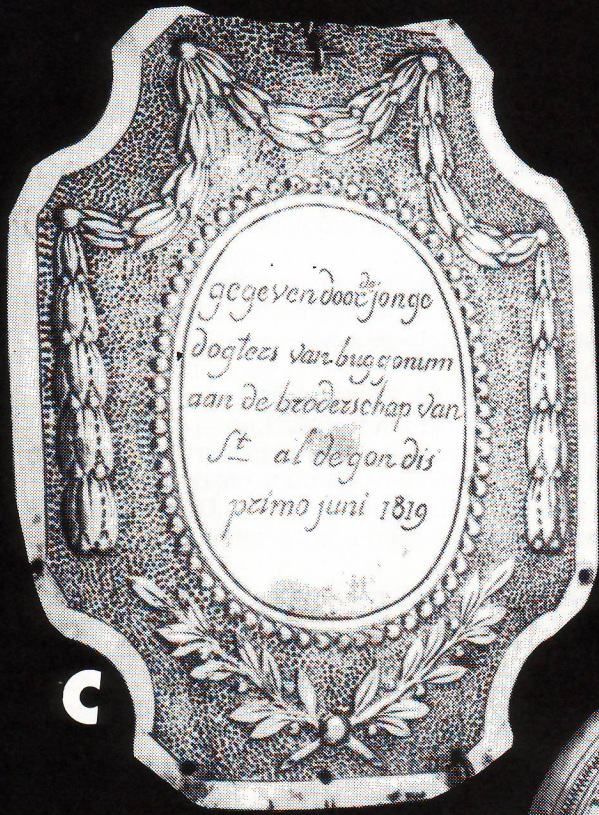 gegeven door de jonge
dogters van buggonum
aan de broderschap van
St al de gon dis
primo juni 1819
C